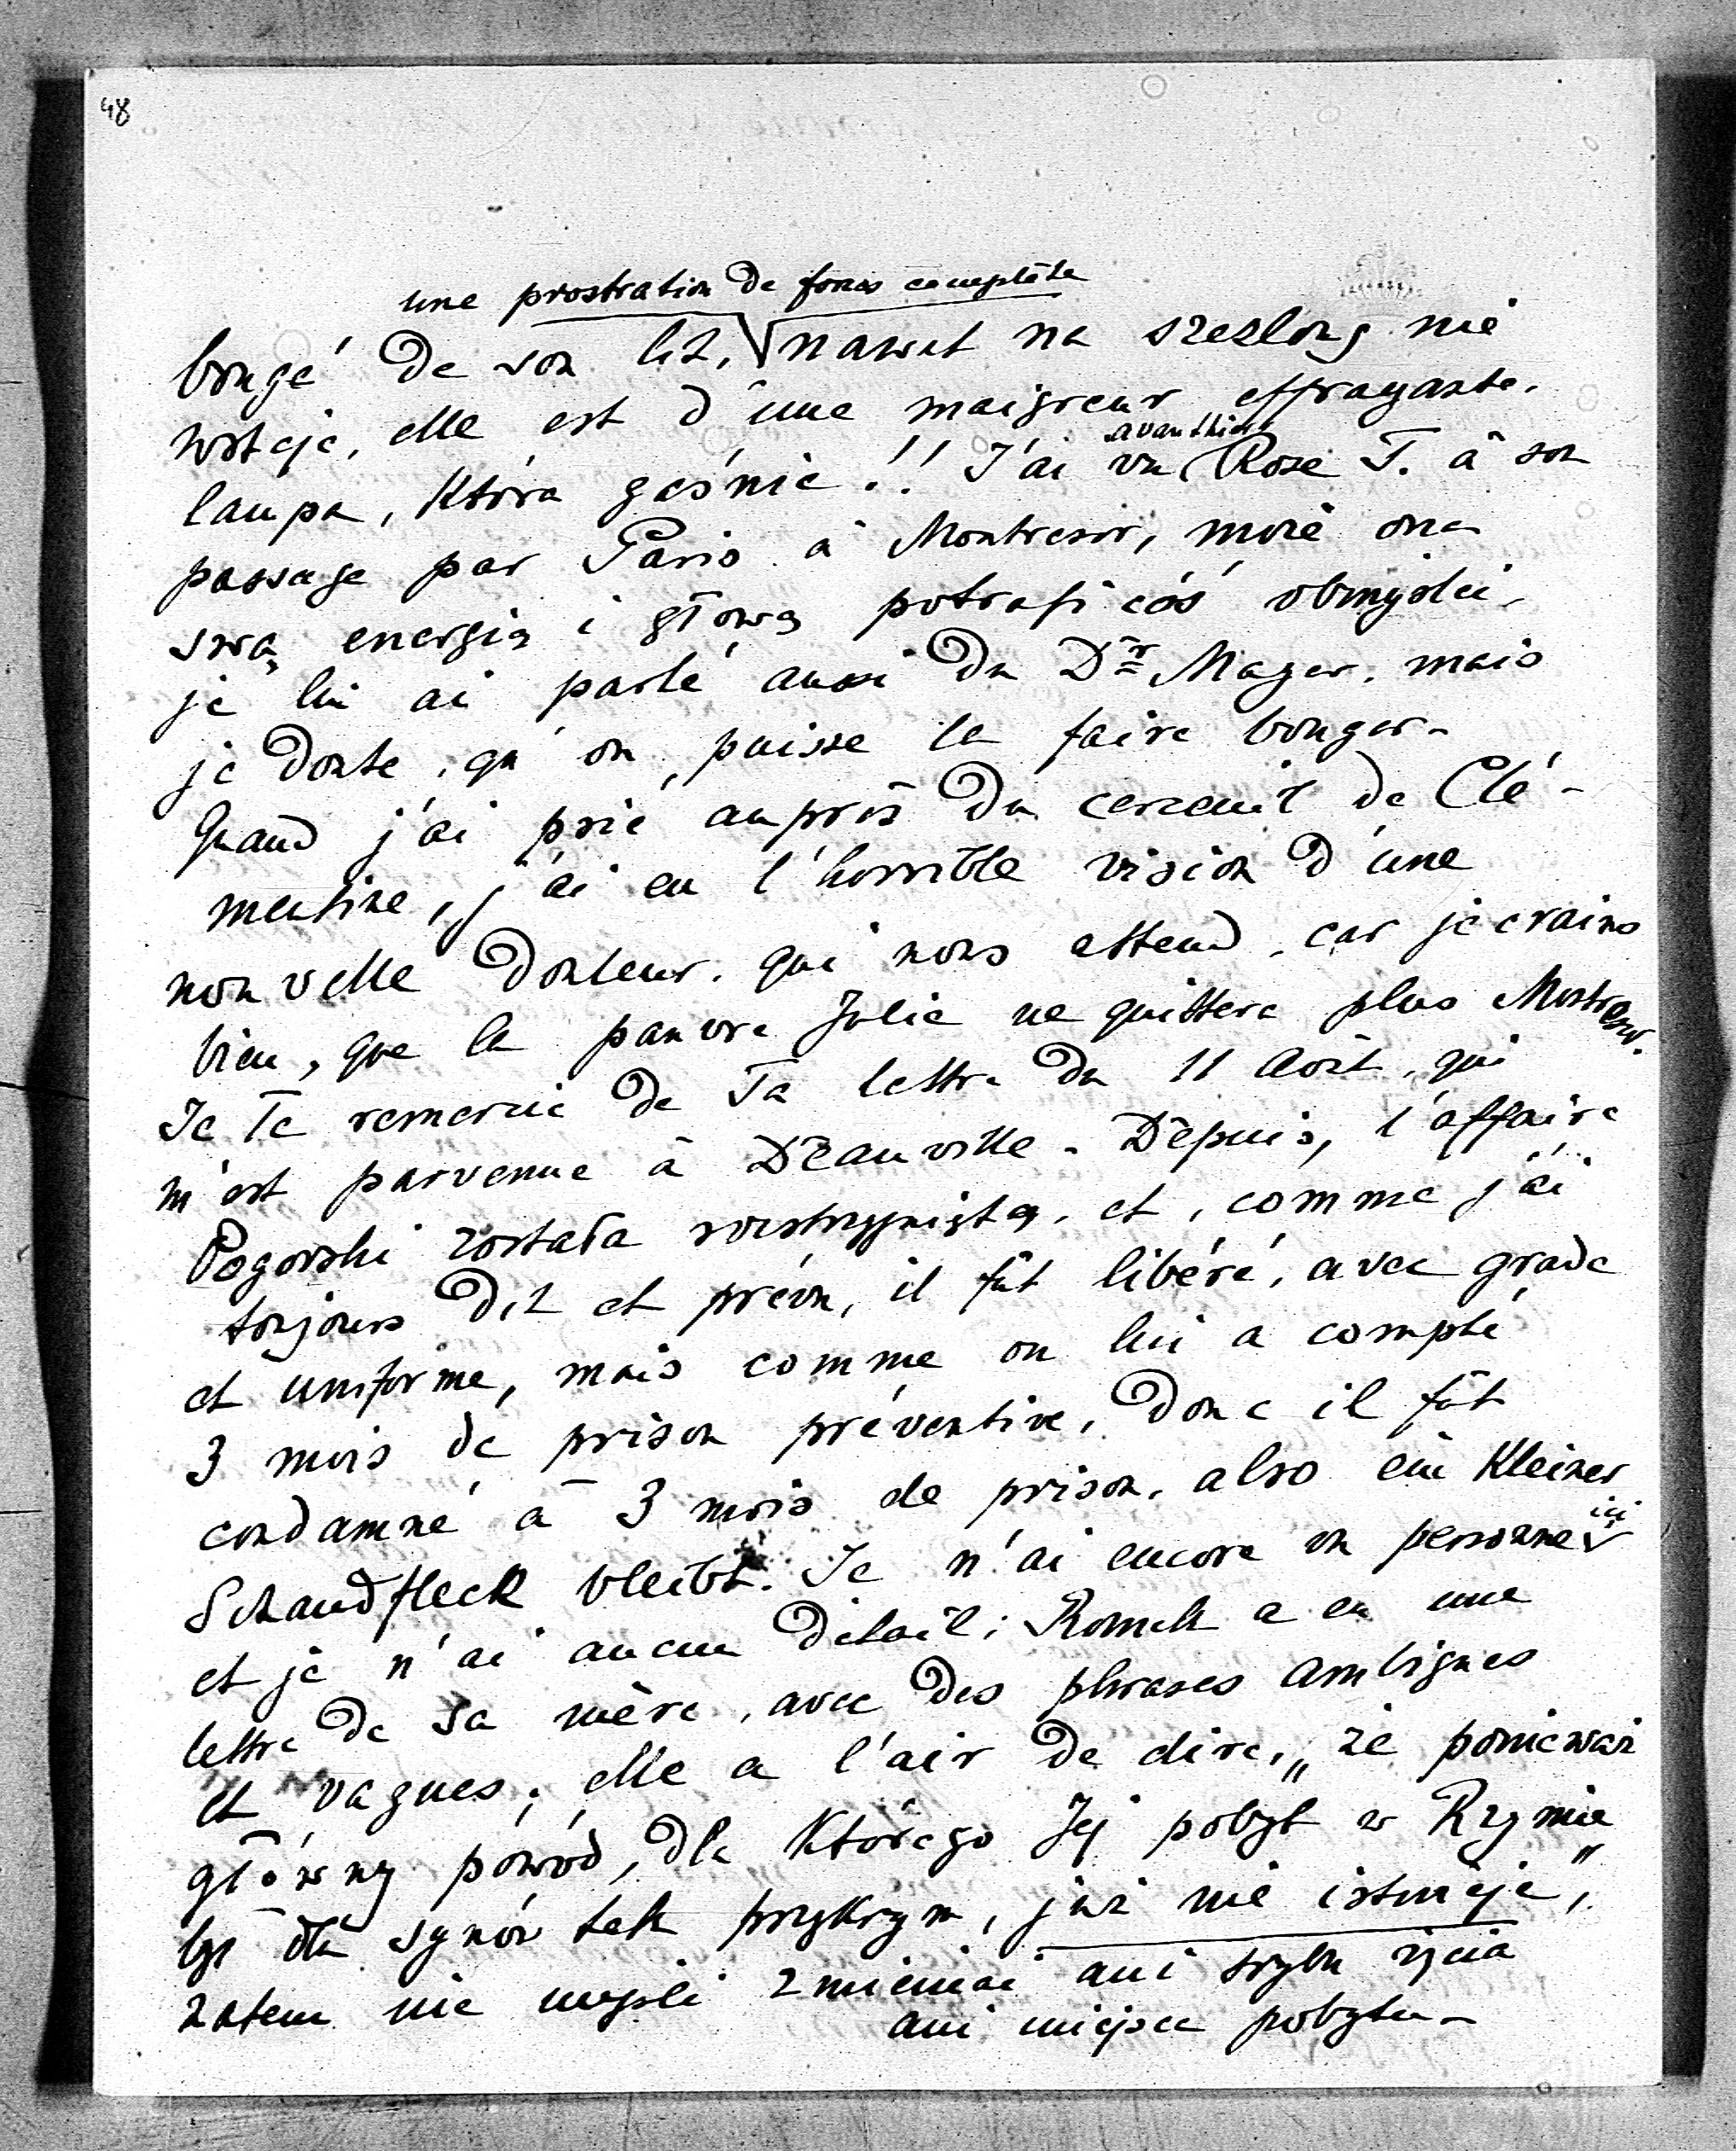 48
une prostration de forces complète
bougé de son lit, nawet na szezlong nie
wstaje, elle est d'une maigreur effrayante.
lampa, która gaśnie!! J'ai vu avanthier Rose T. à son
passage par Paris à Montresor, może ona
swą energią i głową potrafi cóś obmyśleć.
je lui ai parlé aussi du Dr Mayer, mais
je doute, qu'on puisse la faire bouger -
Quand j'ai prié auprès du cercueil de Clé-
mentine, j'ai eu l'horrible vision d'une
nouvelle douleur, qui nous attend, car je crains
bien, que la pauvre Julie ne quittera plus Montresor.
Je Te remercie de Ta lettre du 11 Août, qui
m'est parvenue à Deauville - Depuis, l'affaire
Pogorski została rozstrzygniętą, et, comme j'ai
toujours dit et prévu, il fût libéré, avec grade
et uniforme, mais comme on lui a compté
3 mois de prison préventive, donc il fût
condamné à 3 mois de prison, also ein kleiner
Schandfleck bleibt. Je n'ai encore vu personne ici
et je n'ai aucun détail; Romek a eu une
lettre de sa mère, avec des phrases ambigues
et vagues; elle a l'air de dire, „że ponieważ
główny powód, dla którego Jej pobyt w Rzymie
był dla synów tak przykrym, już nie istnieje",
zatem nie myśli zmieniać ani trybu życia
ani miejsca pobytu -